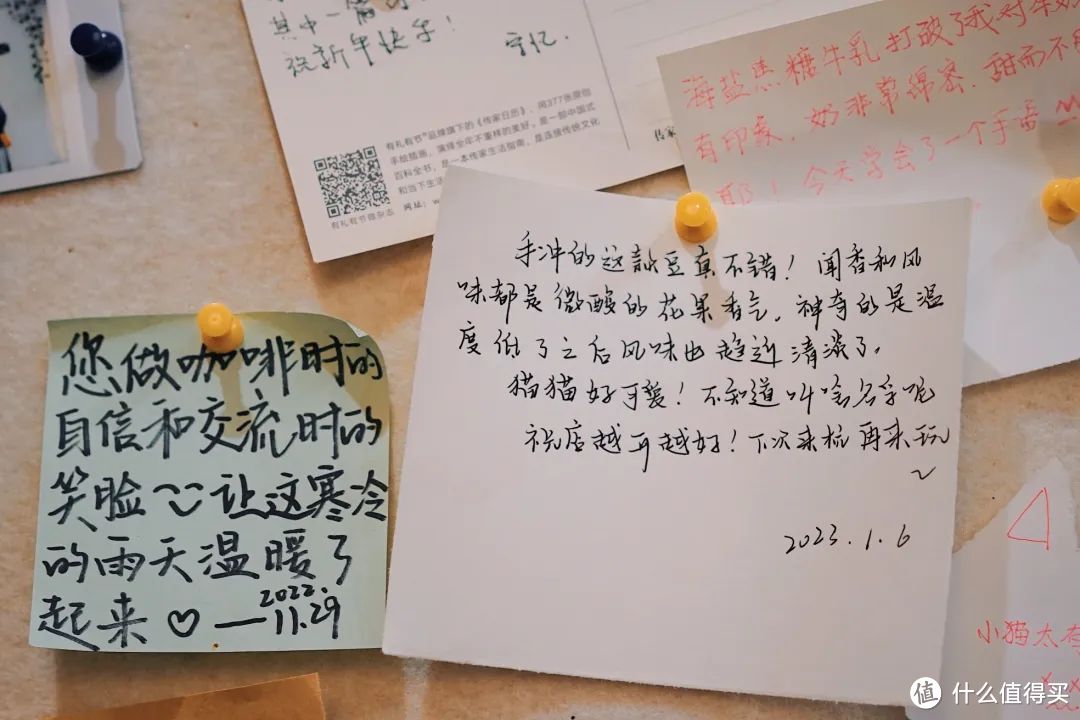 祝新年快乐！
有礼有节®品牌旗下的《传家日历》，用377张原创
手绘插画，演绎全年不重样的美好，是一部中国式
百科全书，是一本传家生活指南，是连接传统文化
和当下生活
网址：w
有礼有节微杂志
传家
海盐焦糖牛乳打破了我对牛奶
有印象，奶非常绵密，甜而不
耶！今天学会了一个手
手冲的这款豆真不错！闻香和风
味都是微酸的花果香气，神奇的是温
度低了之后风味也趋近清淡了。
猫猫好可爱！不知道叫啥名字呢
祝店越开越好！下次来杭再来玩
~
2023.1.6
您做咖啡时的
自信和交流时的
笑脸 让这寒冷
的雨天温暖了
起来♡—2022.
11.29
小猫太
值 什么值得买